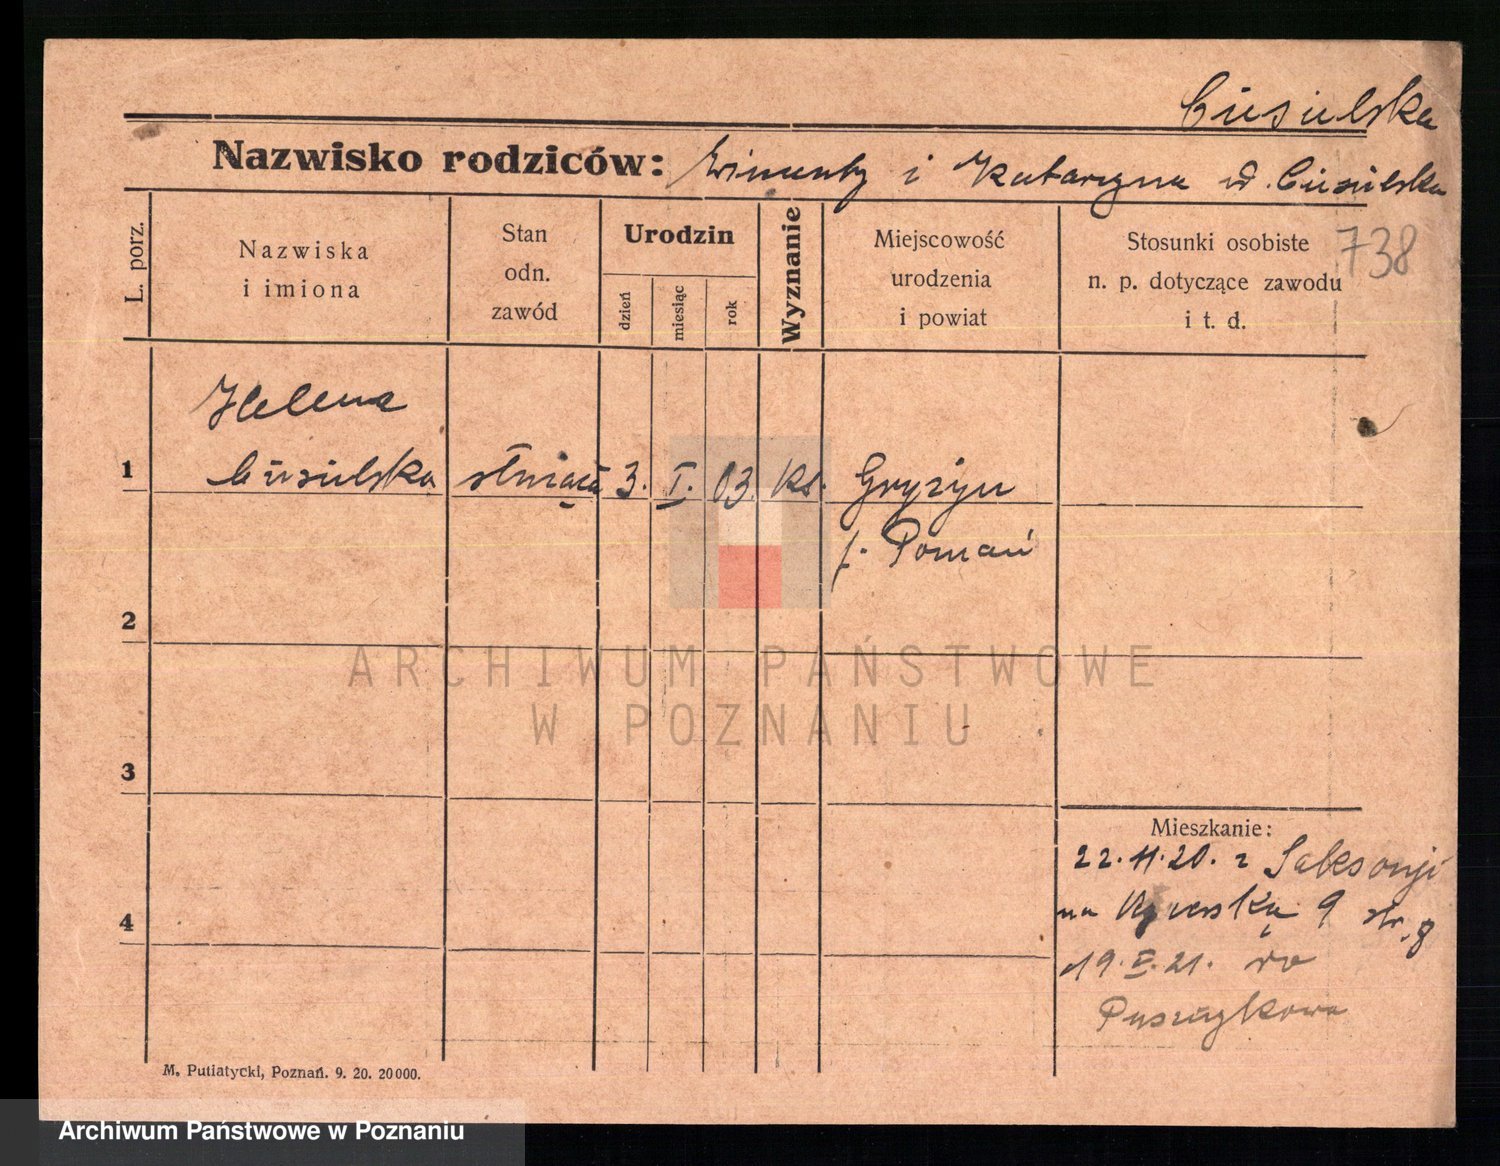 Ciesielska
Nazwisko rodziców: i Katarzyna
738
L. porz.
Nazwiska
i imiona
Stan
odn.
zawód
Urodzin
dzień
miesiąc
rok
Wyznanie
Miejscowość
urodzenia
i powiat
Stosunki osobiste
n. p. dotyczące zawodu
i t. d.
Helena
1
3. I. 03. kt. Gryżyn
p. Poznań
2
3
4
Mieszkanie:
22.11.20. z Saksonji
na 9 str. 8
19.I.21. do
Puszczykowa
M. Putiatycki, Poznań. 9. 20. 20000.
ARCHIWUM PAŃSTWOWE
W POZNANIU
Archiwum Państwowe w Poznaniu